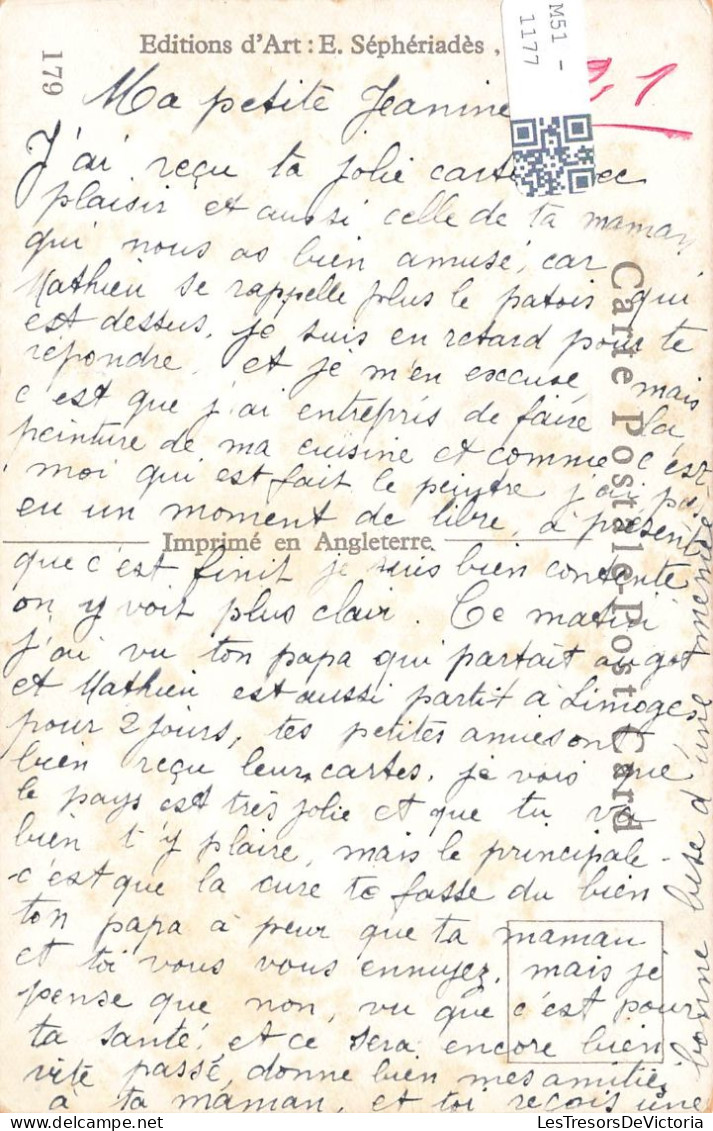 Editions d'Art : E. Séphériadès,
179
M51 -
1177
21
Ma petite Jeanine
J'ai reçu ta jolie carte avec
plaisir et aussi celle de ta maman
qui nous as bien amusé, car
Mathieu se rappelle plus le patois qui
est dessus, je suis en retard pour te
répondre, et je m'en excuse, mais
c'est que j'ai entrepris de faire la
peinture de ma cuisine et comme c'est
moi qui est fait le peintre j'ai pas
eu un moment de libre, à présent
Imprimé en Angleterre
que c'est finit je suis bien contente
on y voit plus clair. Ce matin
j'ai vu ton papa qui partait au got
et Mathieu est aussi partit à Limoges
pour 2 jours, tes petites amies ont
bien reçu leurs cartes. je vois que
le pays est très jolie et que tu va
bien t'y plaire, mais le principale
c'est que la cure te fasse du bien
ton papa à peur que ta maman
et toi vous vous ennuyez, mais je
pense que non, vu que c'est pour
ta santé, et ce sera encore bien
vite passé, donne bien mes amitiés
à ta maman, et toi reçois une
bonne bise d'une amie
Carte Postale-Post Card
LesTresorsDeVictoria